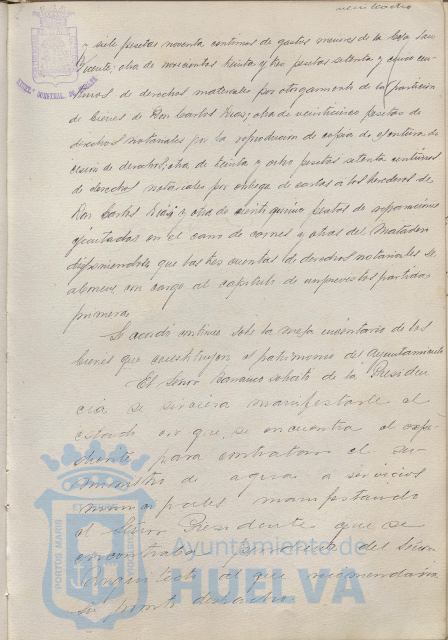 veinticuatro
y siete pesetas noventa centimos de gastos menores de la Casa San
Vicente; otra de novecientas treinta y tres pesetas setenta y cinco cen-
timos de derechos materiales por otorgamiento de la particion
de bienes de Don Carlos Rias; otra de veinticinco pesetas de
derechos notariales por la reproducion de copia de escritura de
cesion de derechos; otra de treinta y ocho pesetas setenta centimos
de derechos notariales por entrega de cartas a los herederos de
Don Carlos Rias y otra de veinti quince pesetas de reparaciones
ejecutadas en el carro de carnes y otras del Matadero
disponiendose que las tres cuentas de derechos notariales se
abonen con cargo al capitulo de imprevistos partida
primera.
Se acordó continue sobre la mesa inventario de los
bienes que constituyen el patrimonio del Ayuntamiento
El Señor Barranco solicitó de la Presiden
cia se sirviera manifestarle el
estado en que se encuentra el expe-
diente para contratar el su-
ministro de agua a servicios
municipales manifestando
el Señor Presidente que se
encontraba del Señor
Arquitecto al que recomendaria
su pronto despacho.
Ayuntamiento de
HUELVA
PORTUS MARIS